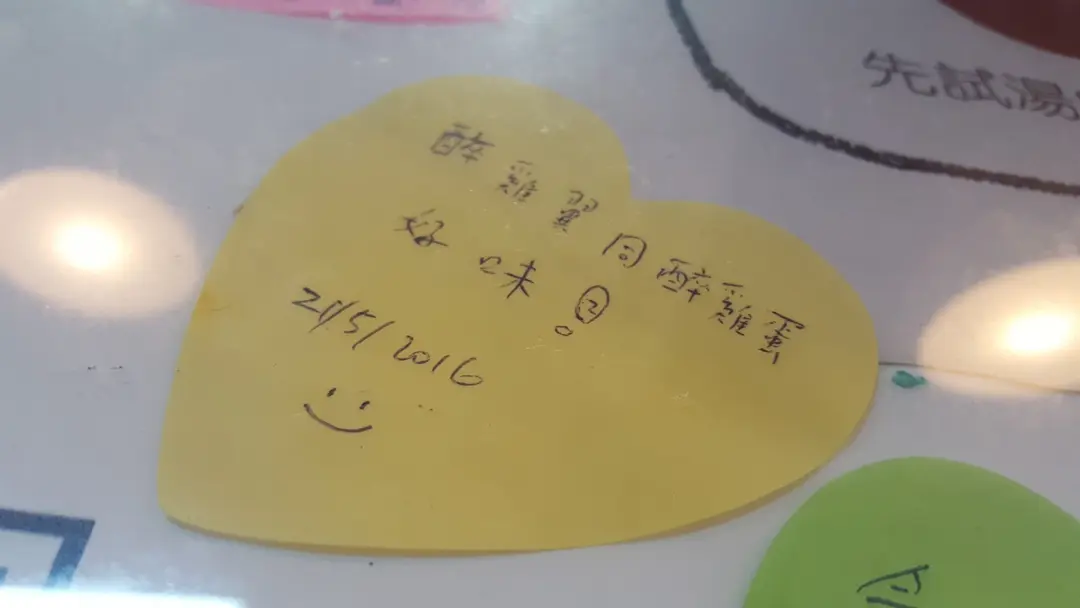 先試湯
醉雞翼同醉雞蛋
好味!
21/5/2016